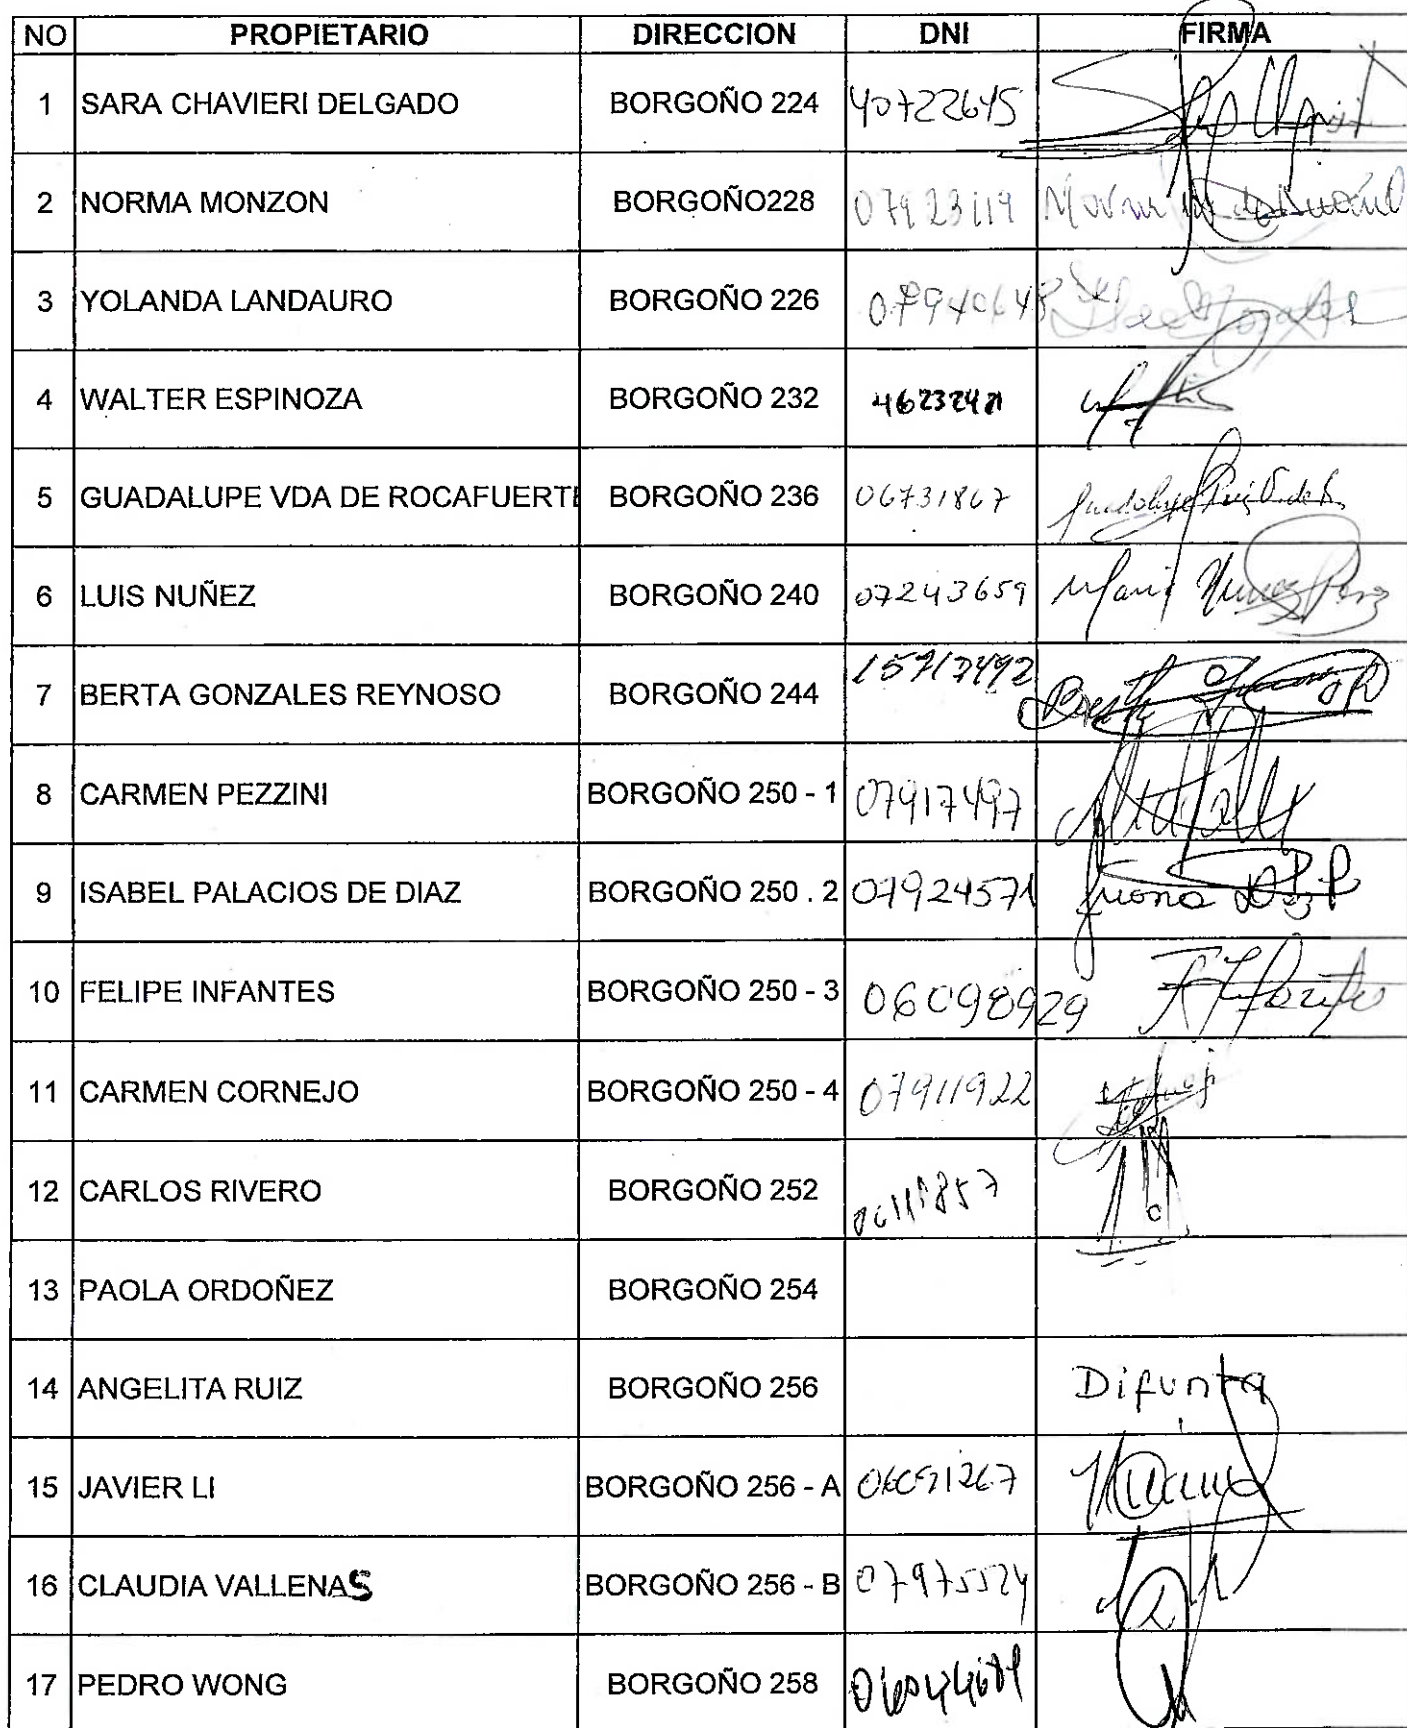 NO PROPIETARIO DIRECCION DNI FIRMA
1 SARA CHAVIERI DELGADO BORGOÑO 224 40722645
2 NORMA MONZON BORGOÑO228 07923119
3 YOLANDA LANDAURO BORGOÑO 226
4 WALTER ESPINOZA BORGOÑO 232
5 GUADALUPE VDA DE ROCAFUERTE BORGOÑO 236 06731867
6 LUIS NUÑEZ BORGOÑO 240 07243659 Maria Nuñez Perez
7 BERTA GONZALES REYNOSO BORGOÑO 244
8 CARMEN PEZZINI BORGOÑO 250 - 1 07917497
9 ISABEL PALACIOS DE DIAZ BORGOÑO 250 . 2 07924571 Juana
10 FELIPE INFANTES BORGOÑO 250 - 3 06098929
11 CARMEN CORNEJO BORGOÑO 250 - 4 07911922
12 CARLOS RIVERO BORGOÑO 252
13 PAOLA ORDOÑEZ BORGOÑO 254
14 ANGELITA RUIZ BORGOÑO 256 Difunta
15 JAVIER LI BORGOÑO 256 - A
16 CLAUDIA VALLENAS BORGOÑO 256 - B 07975524
17 PEDRO WONG BORGOÑO 258